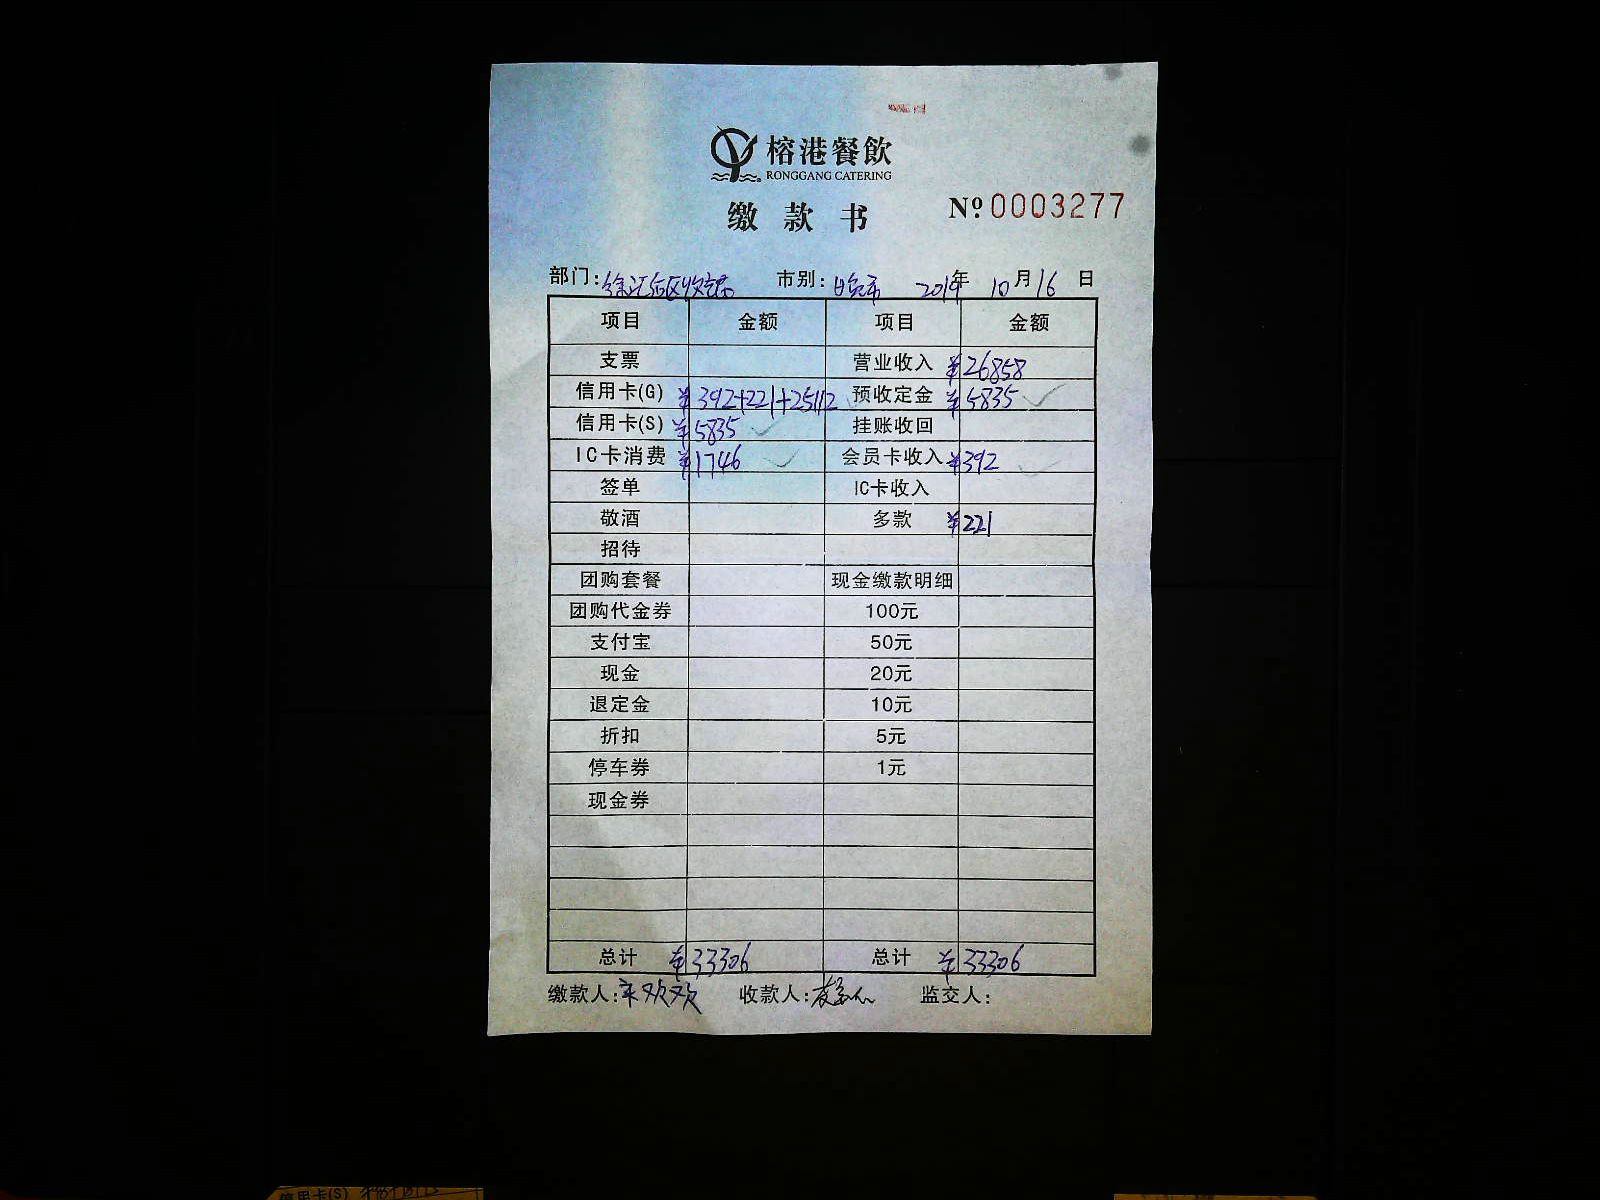 榕港餐飲
RONGGANG CATERING
缴款书
Nº 0003277
部门: 市别: 2019年 10月16日
项目 金额 项目 金额
支票 营业收入 ¥26858
信用卡(G) ¥392+221+25112 预收定金 ¥5835
信用卡(S) ¥5835 挂账收回
IC卡消费 ¥1746 会员卡收入 ¥392
签单 IC卡收入
敬酒 多款 ¥221
招待
团购套餐 现金缴款明细
团购代金券 100元
支付宝 50元
现金 20元
退定金 10元
折扣 5元
停车券 1元
现金券
总计 ¥33306 总计 ¥33306
缴款人: 收款人: 监交人:
信用卡(S)